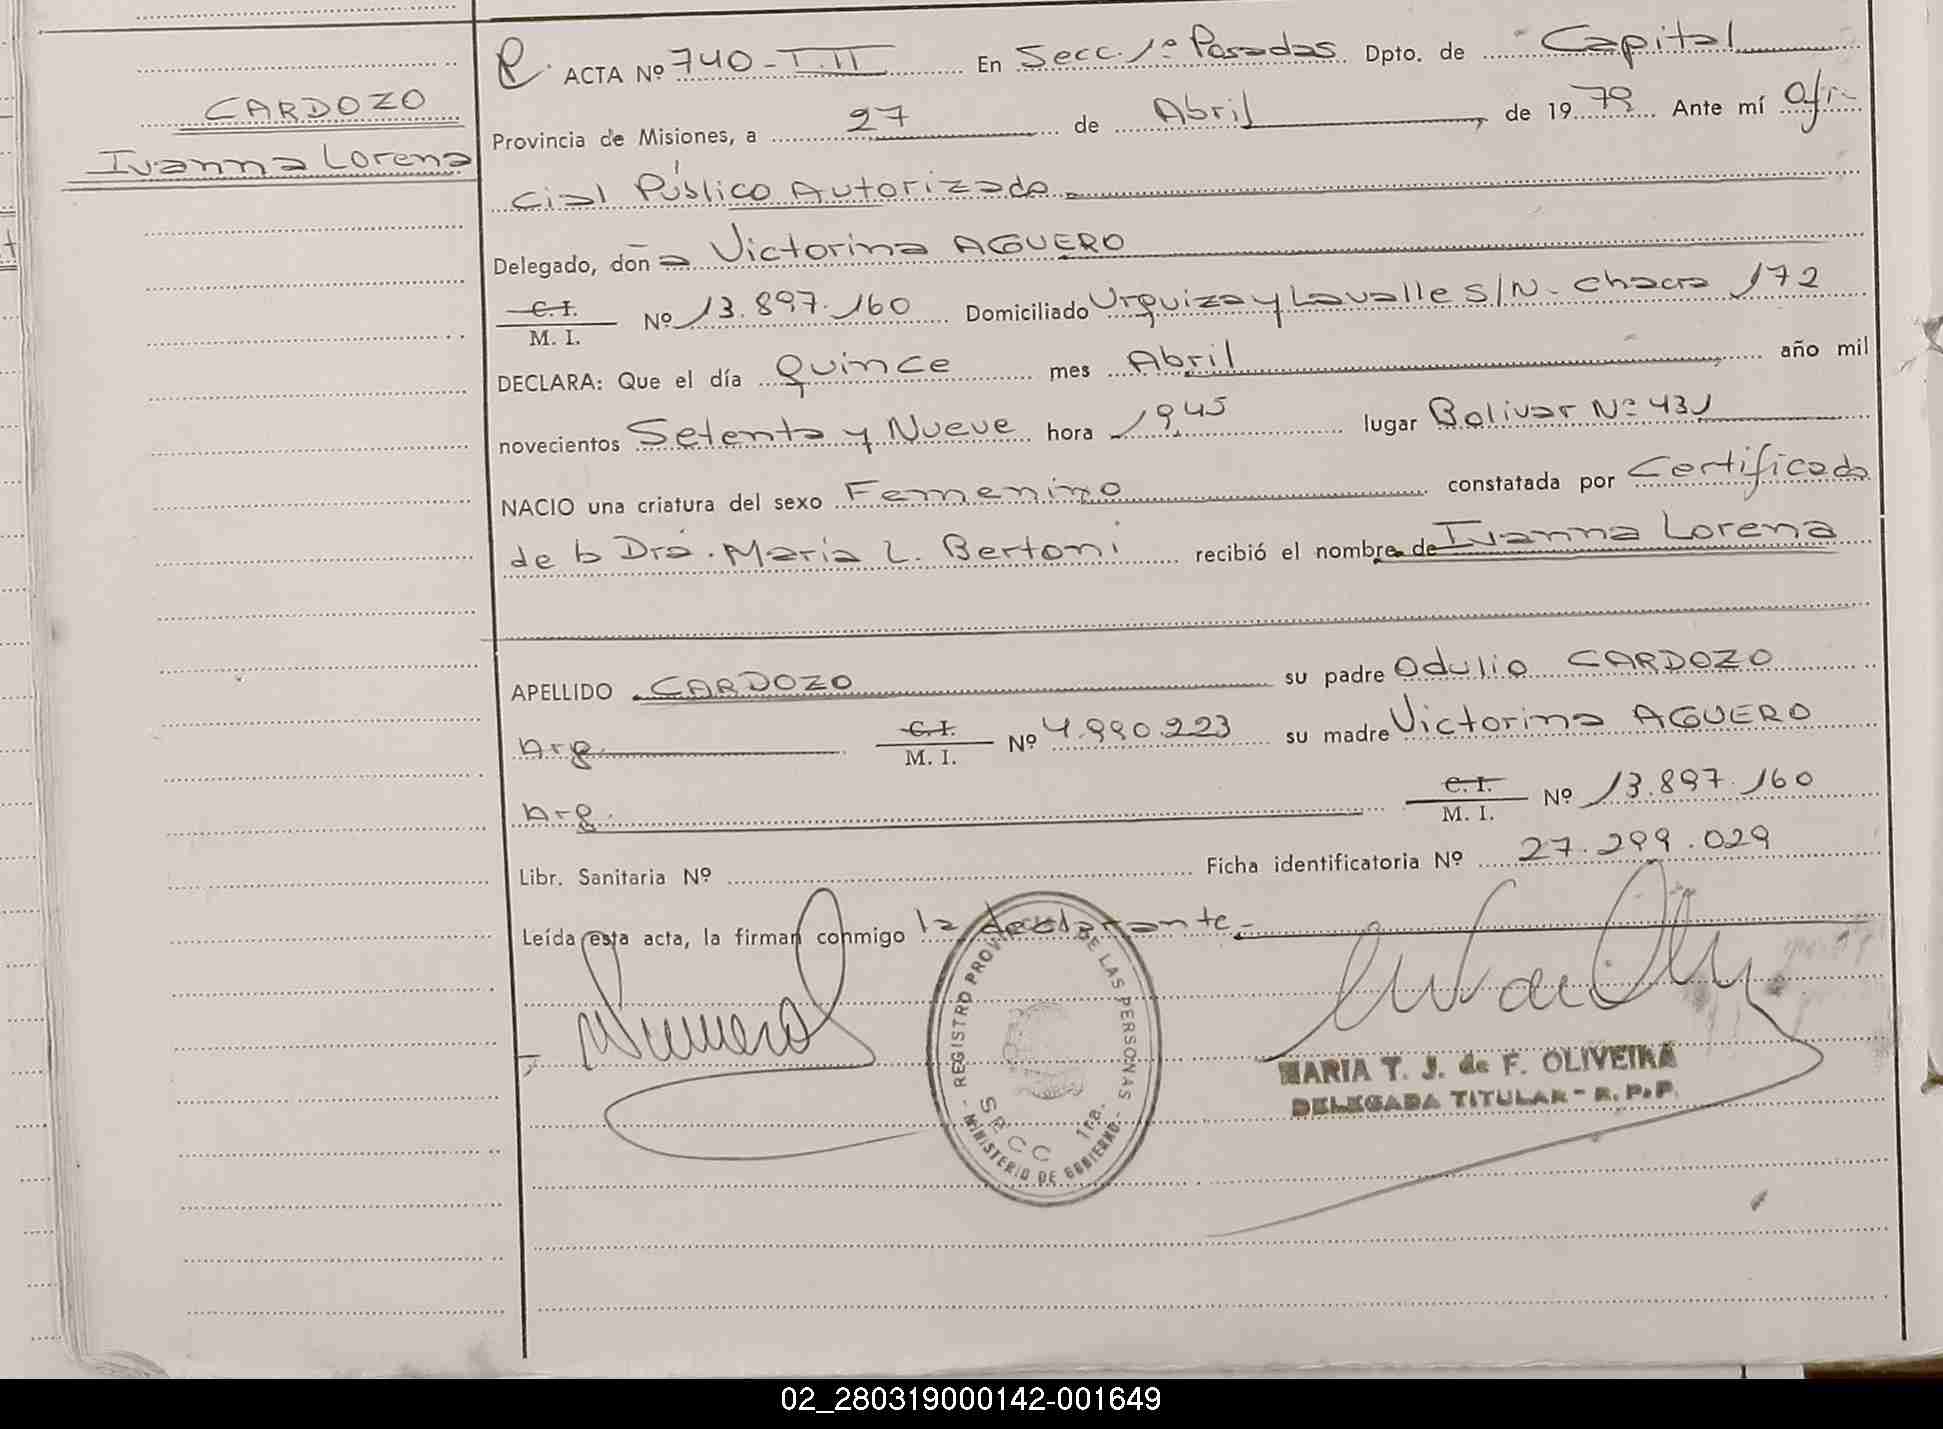 CARDOZO
Ivanna Lorena
P. ACTA Nº 740 - T. II En Secc. 1º Posadas Dpto. de Capital
Provincia de Misiones, a 27 de Abril de 1979 Ante mí Ofi-
cial Público Autorizado
Delegado, doña Victorina AGUERO
C. I.
M. I. Nº 13.897.160 Domiciliado Urquiza y Lavalle S/N - chacra 172
DECLARA: Que el día Quince mes Abril año mil
novecientos Setenta y Nueve hora 19,45 lugar Bolivar Nº 431
NACIO una criatura del sexo Femenino constatada por Certificado
de la Dra. Maria L. Bertoni recibió el nombre de Ivanna Lorena
APELLIDO CARDOZO su padre Odulio CARDOZO
arg. C. I.
M. I. Nº 4.990.223 su madre Victorina AGUERO
arg. C. I.
M. I. Nº 13.897.160
Libr. Sanitaria Nº Ficha identificatoria Nº 27.299.029
Leída esta acta, la firman conmigo la declarante -
REGISTRO PROVINCIAL DE LAS PERSONAS
SECC 1ra.
MINISTERIO DE GOBIERNO
MARIA T. J. de F. OLIVEIRA
DELEGADA TITULAR - R. P. P.
02_280319000142-001649